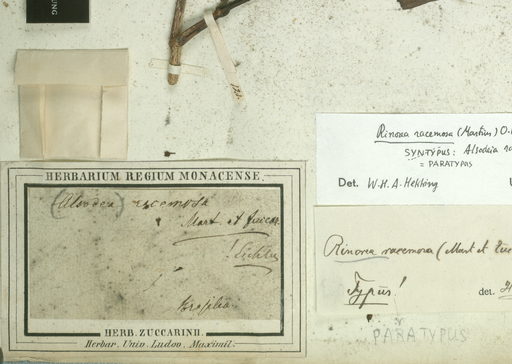 HERBARIUM REGIUM MONACENSE.
(Alsodea) racemosa
Mart et Zuccar.
! Eichler
Brasilia.
HERB. ZUCCARINII.
Herbar. Univ. Ludov. Maximil.
Rinorea racemosa (Martius) O.
SYNTYPUS: Alsodeia ra
= PARATYPUS
Det. W.H.A. Hekking
Rinorea racemosa (Mart et Zuc
Typus!
det.
PARATYPUS